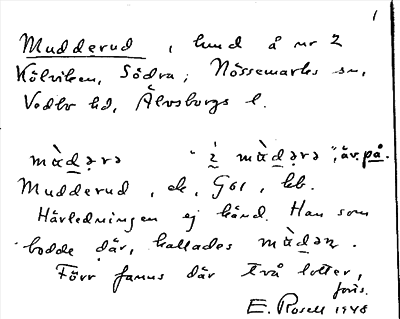 1
Mudderud, lund å nr 2
Kölviken, Södra; Nössemarks sn,
Vedbo hd, Älvsborgs l.
mùd̲ərə "i̲ mùd̲ərə", äv. på.
Mudderud, ck, G61, kb.
Härledningen ej känd. Han som
bodde där, kallades mùd̲ən.
Förr fanns där två lotter,
förs.
E. Rosell 1948